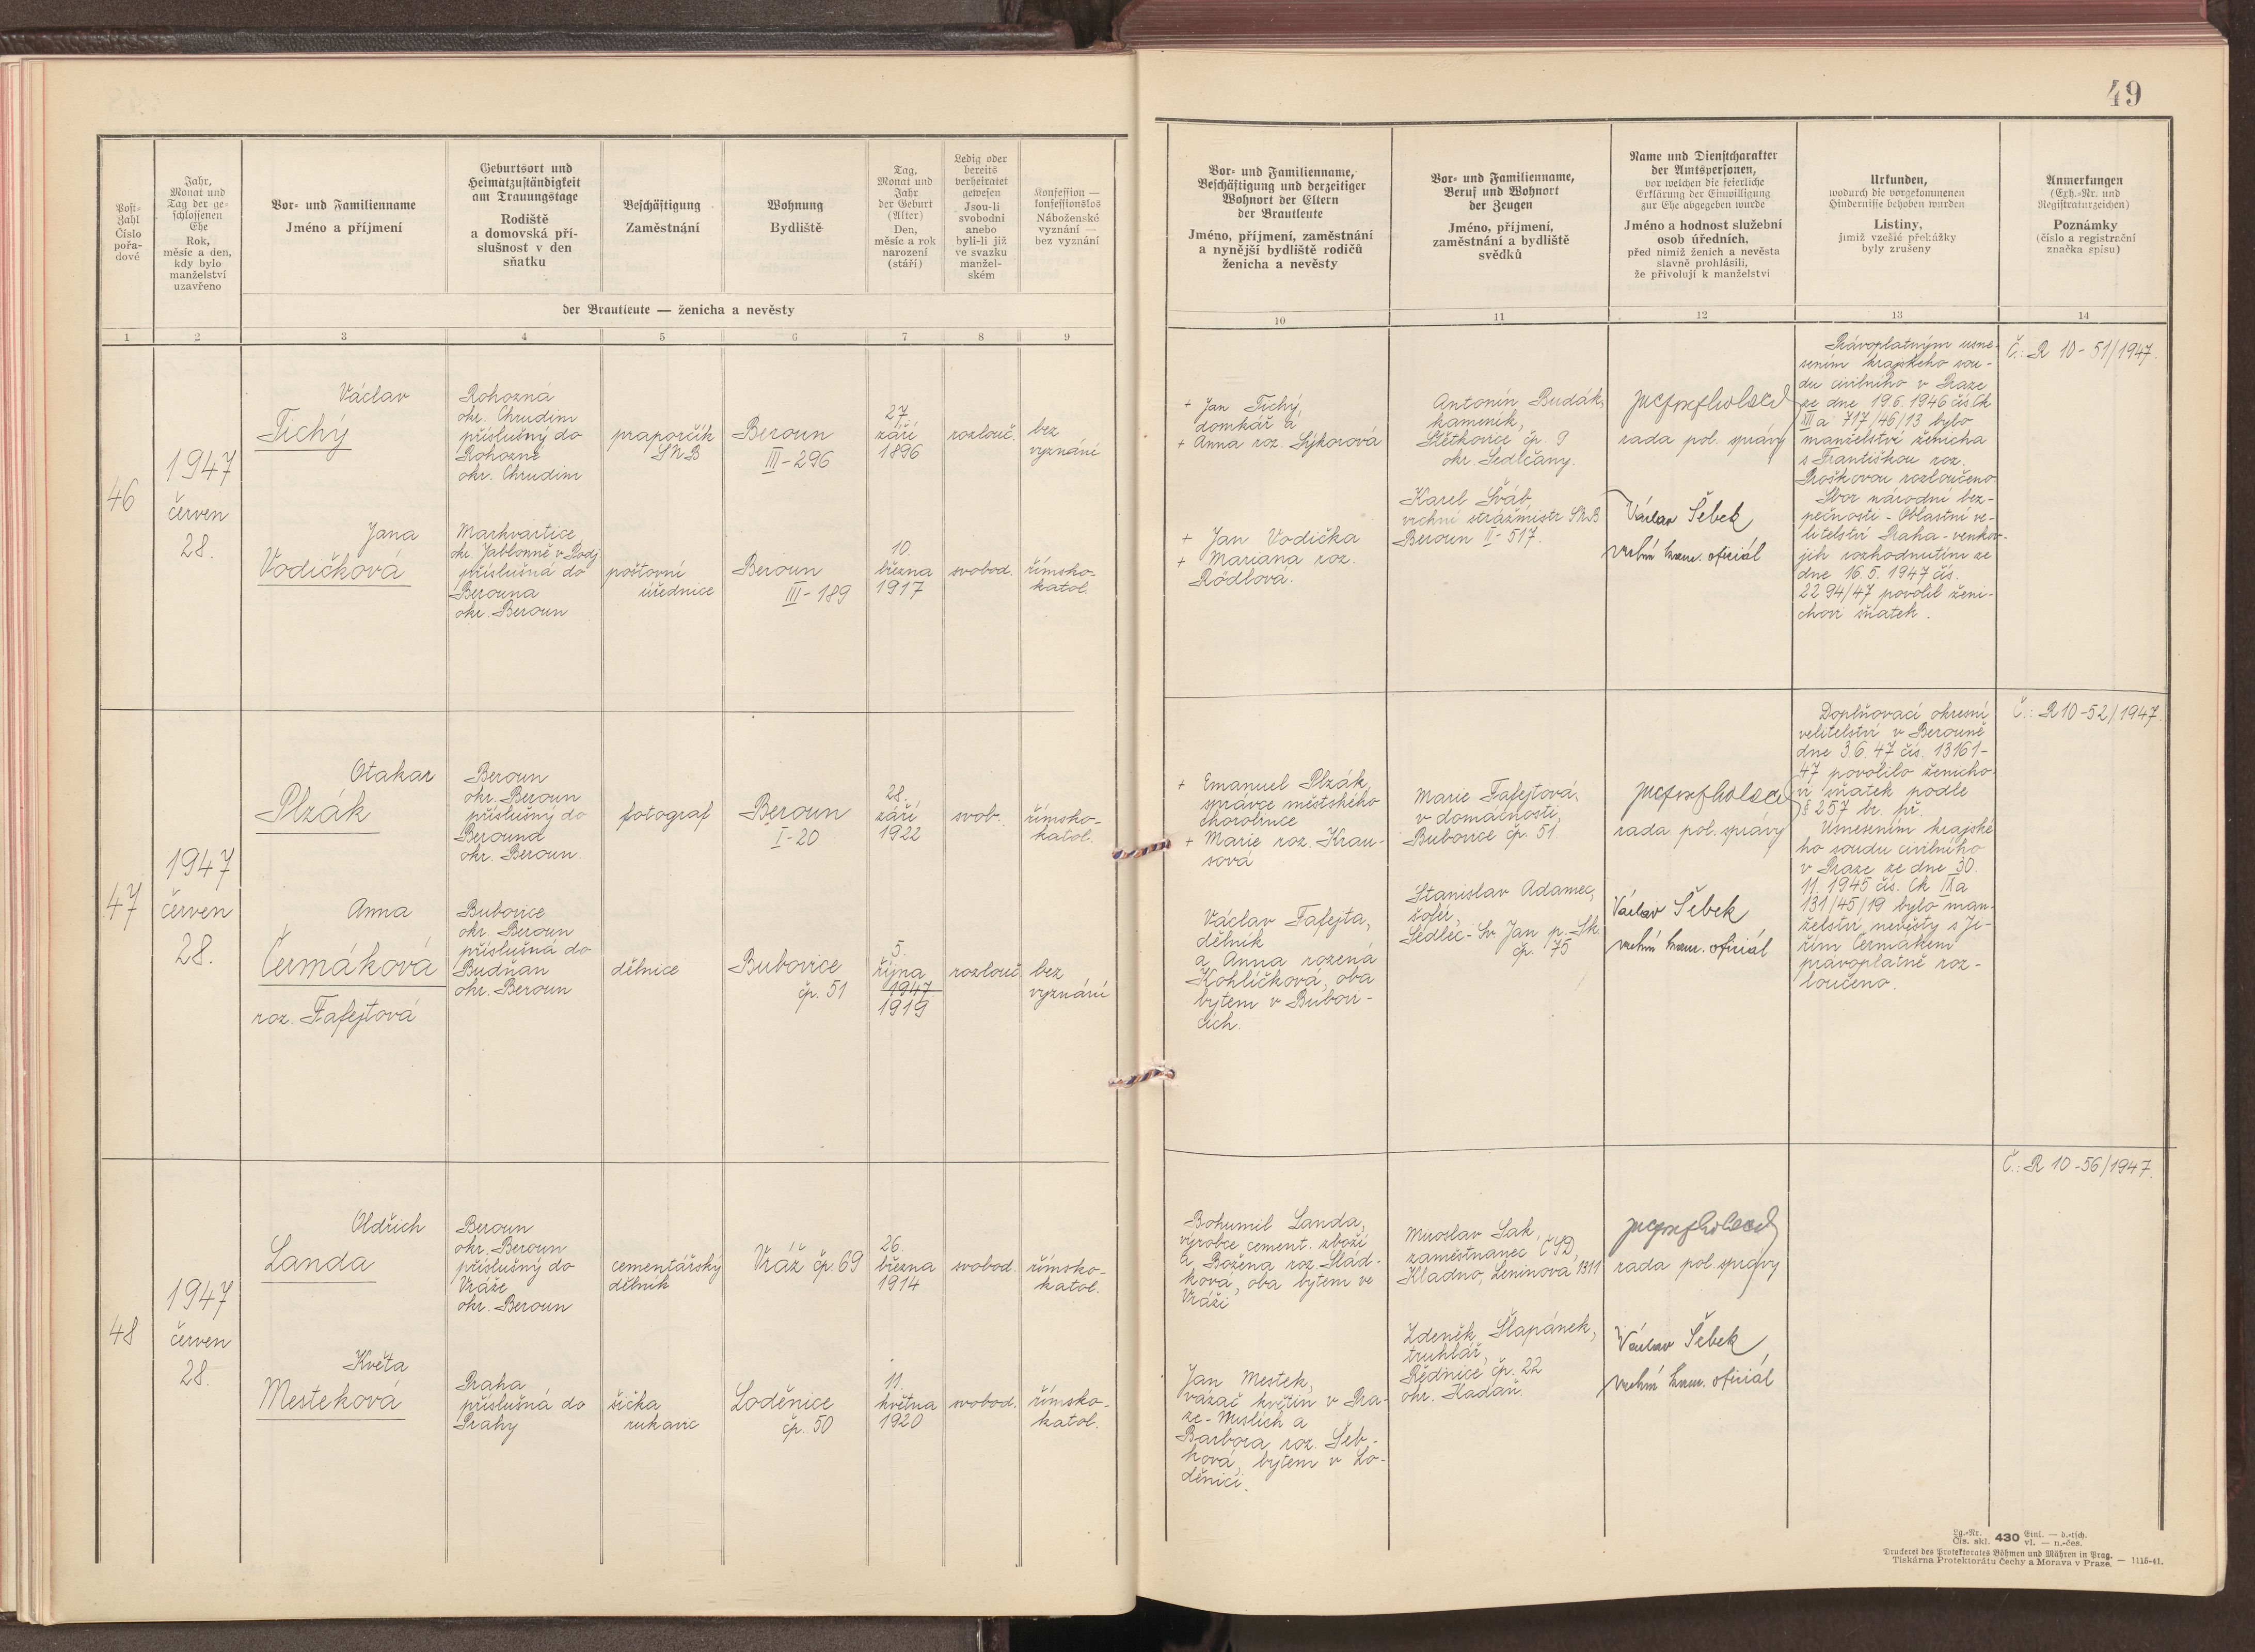 49
Post-
Zahl
Číslo
pořa-
dové
Jahr,
Monat und
Tag der ge-
schlossenen
Ehe
Rok,
měsíc a den,
kdy bylo
manželství
uzavřeno
Vor- und Familienname
Jméno a příjmení
Geburtsort und
Heimatzuständigkeit
am Trauungstage
Rodiště
a domovská pří-
slušnost v den
sňatku
Beschäftigung
Zaměstnání
Wohnung
Bydliště
Tag,
Monat und
Jahr
der Geburt
(Alter)
Den,
měsíc a rok
narození
(stáří)
Ledig oder
bereits
verheiratet
gewesen
Jsou-li
svobodni
anebo
byli-li již
ve svazku
manžel-
ském
Konfession —
konfessionslos
Náboženské
vyznání —
bez vyznání
der Brautleute — ženicha a nevěsty
Vor- und Familienname,
Beschäftigung und derzeitiger
Wohnort der Eltern
der Brautleute
Jméno, příjmení, zaměstnání
a nynější bydliště rodičů
ženicha a nevěsty
Vor- und Familienname,
Beruf und Wohnort
der Zeugen
Jméno, příjmení,
zaměstnání a bydliště
svědků
Name und Dienstcharakter
der Amtspersonen,
vor welchen die feierliche
Erklärung der Einwilligung
zur Ehe abgegeben wurde
Jméno a hodnost služební
osob úředních,
před nimiž ženich a nevěsta
slavně prohlásili,
že přivolují k manželství
Urkunden,
wodurch die vorgekommenen
Hindernisse behoben wurden
Listiny,
jimiž vzešlé překážky
byly zrušeny
Anmerkungen
(Exh.-Nr. und
Registraturzeichen)
Poznámky
(číslo a registrační
značka spisu)
1 2 3 4 5 6 7 8 9 10 11 12 13 14
46
1947
červen
28.
Václav
Tichý
Rohozná
okr. Chrudim
příslušný do
Rohozné
okr. Chrudim
praporčík
SNB
Beroun
III-296
27.
září
1896
rozlouč.
bez
vyznání
Jana
Vodičková
Markvartice,
okr. Jablonné v Podj.
příslušná do
Berouna
okr. Beroun
poštovní
úřednice
Beroun
III-189
10.
března
1917
svobod.
římsko-
katol.
+ Jan Tichý,
domkář a
+ Anna roz. Sýkorová
+ Jan Vodička
+ Mariana roz.
Rödlova.
Antonín Budák,
kameník,
Štětkovice čp. 9
okr. Sedlčany.
Karel Šváb,
vrchní strážmistr SNB
Beroun II-517.
rada pol. správy
Václav Šebek
vrchní kanc. oficiál
Právoplatným usne-
sením krajského sou-
du civilního v Praze
ze dne 19.6.1946 čís. Ck
III a 717/46/13 bylo
manželství ženicha
s Františkou roz.
Proškovou rozloučeno
Sbor národní bez-
pečnosti - Oblastní ve-
litelství Praha-venkov-
jih rozhodnutím ze
dne 16.5.1947 čís.
2294/47 povolil ženi-
chovi sňatek.
Č.: R 10-51/1947.
47
1947
červen
28.
Otakar
Plzák
Beroun
okr. Beroun
příslušný do
Berouna
okr. Beroun.
fotograf
Beroun
I-20
28.
září
1922
svob.
římsko-
katol.
Anna
Čermáková
roz. Fafejtová
Bubovice
okr. Beroun
příslušná do
Budňan
okr. Beroun
dělnice
Bubovice
čp. 51
5.
října
1947
1919
rozlouč.
bez
vyznání
+ Emanuel Plzák,
správce městského
chorobince
+ Marie roz. Krau-
sová
Václav Fafejta,
dělník
a Anna rozená
Kohlíčková, oba
bytem v Bubovi-
cích.
Marie Fafejtová,
v domácnosti,
Bubovice čp. 51.
Stanislav Adamec,
šofér,
Sedlec-Sv. Jan p. Sk.
čp. 75
rada pol. správy
Václav Šebek
vrchní kanc. oficiál
Doplňovací okresní
velitelství v Berouně
dne 3.6.47 čís. 13161-
47 povolilo ženicho-
vi sňatek podle
§ 257 br. př.
Usnesením krajské-
ho soudu civilního
v Praze ze dne 30.
11. 1945 čís. Ck IX a
131/45/19 bylo man-
želství nevěsty s Ji-
řím Čermákem
právoplatně roz-
loučeno.
Č.: R 10-52/1947.
48
1947
červen
28.
Oldřich
Landa
Beroun
okr. Beroun
příslušný do
Vráže
okr. Beroun
cementářský
dělník
Vráž čp. 69
26.
března
1914
svobod.
římsko-
katol.
Květa
Mesteková
Praha
příslušná do
Prahy
šička
rukavic
Loděnice
čp. 50
11.
května
1920
svobod.
římsko-
katol.
Bohumil Landa,
výrobce cement. zboží
a Božena roz. Slád-
ková, oba bytem ve
Vráži
Jan Mestek,
vázač květin v Pra-
ze-
Barbora roz. Šeb-
ková, bytem v Lo-
děnici.
Miroslav Sak,
zaměstnanec ČSD,
Kladno, Leninova 1311
Zdeněk Štapánek,
truhlář,
čp. 22
okr. Kadaň.
rada pol. správy
Václav Šebek,
vrchní kanc. oficiál
Č.: R 10-56/1947.
Lg.-Nr. 430 Einl. — d.-tsch.
Čís. skl. vl. — n.-čes.
Druckerei des Protektorates Böhmen und Mähren in Prag.
Tiskárna Protektorátu Čechy a Morava v Praze. — 1115-41.